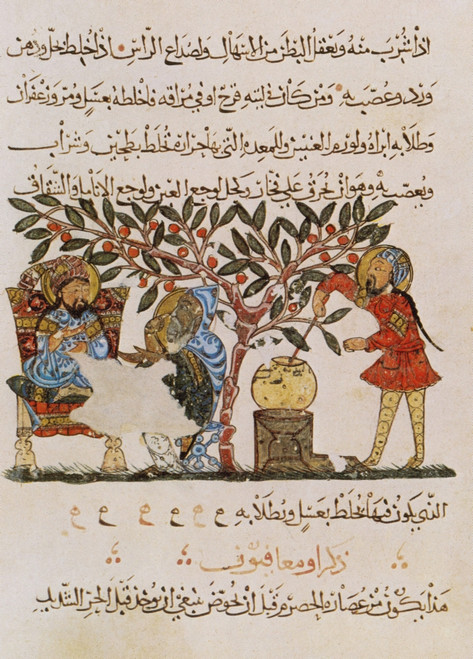 اذا شرب منه وتعقل البطن من الاسهال ولصداع الراس اذا خلط بخل ودهن
ورد وعصب به ومن كان في لثته قرح او في فاخلطه بعسل ومر وزعفران
وطلا به ابراه ولورم العينين وللمعده التي بها حراره تخلط بطحين وشراب
ويعصب به وهو ان يحرق على لوجع العين ولوجع الانامل والشقاق
التي يكون فيها يخلط بعسل ويطلا به
ذكر
هذا يكون من عصاره الحصرم قبل ان ينبغي ان يوخذ قبل الحر الشديد